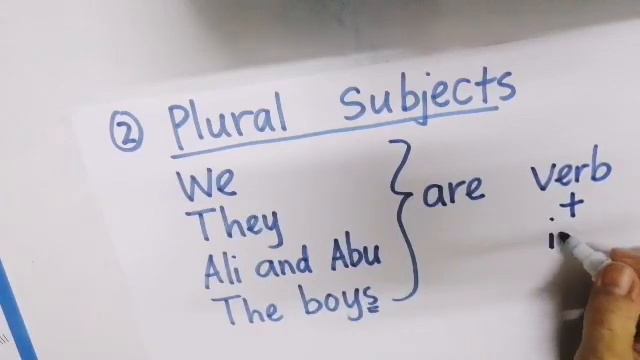 ② Plural Subjects
We
They
Ali and Abu
The boys
} are verb
+
i